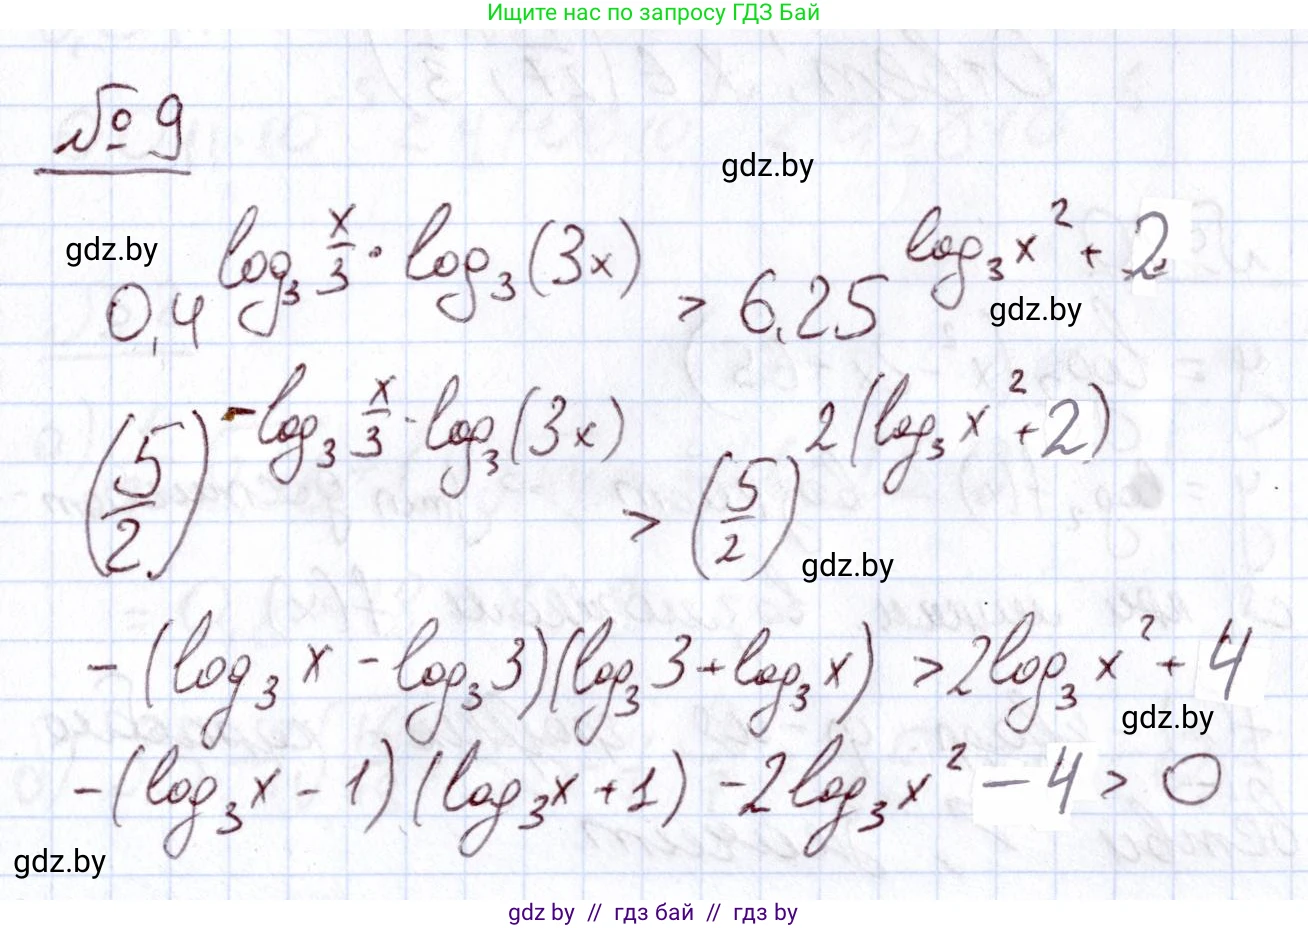 Ищите нас по запросу ГДЗ Бай
№ 9
gdz.by
gdz.by
0,4^(log₃ x/3 · log₃(3x)) > 6,25^(log₃ x² + 2)
gdz.by
(5/2)^(-log₃ x/3 · log₃(3x)) > (5/2)^(2(log₃ x² + 2))
gdz.by
-(log₃ x - log₃ 3)(log₃ 3 + log₃ x) > 2log₃ x² + 4
gdz.by
-(log₃ x - 1)(log₃ x + 1) - 2log₃ x² - 4 > 0
gdz.by
gdz by // гдз бай // гдз by